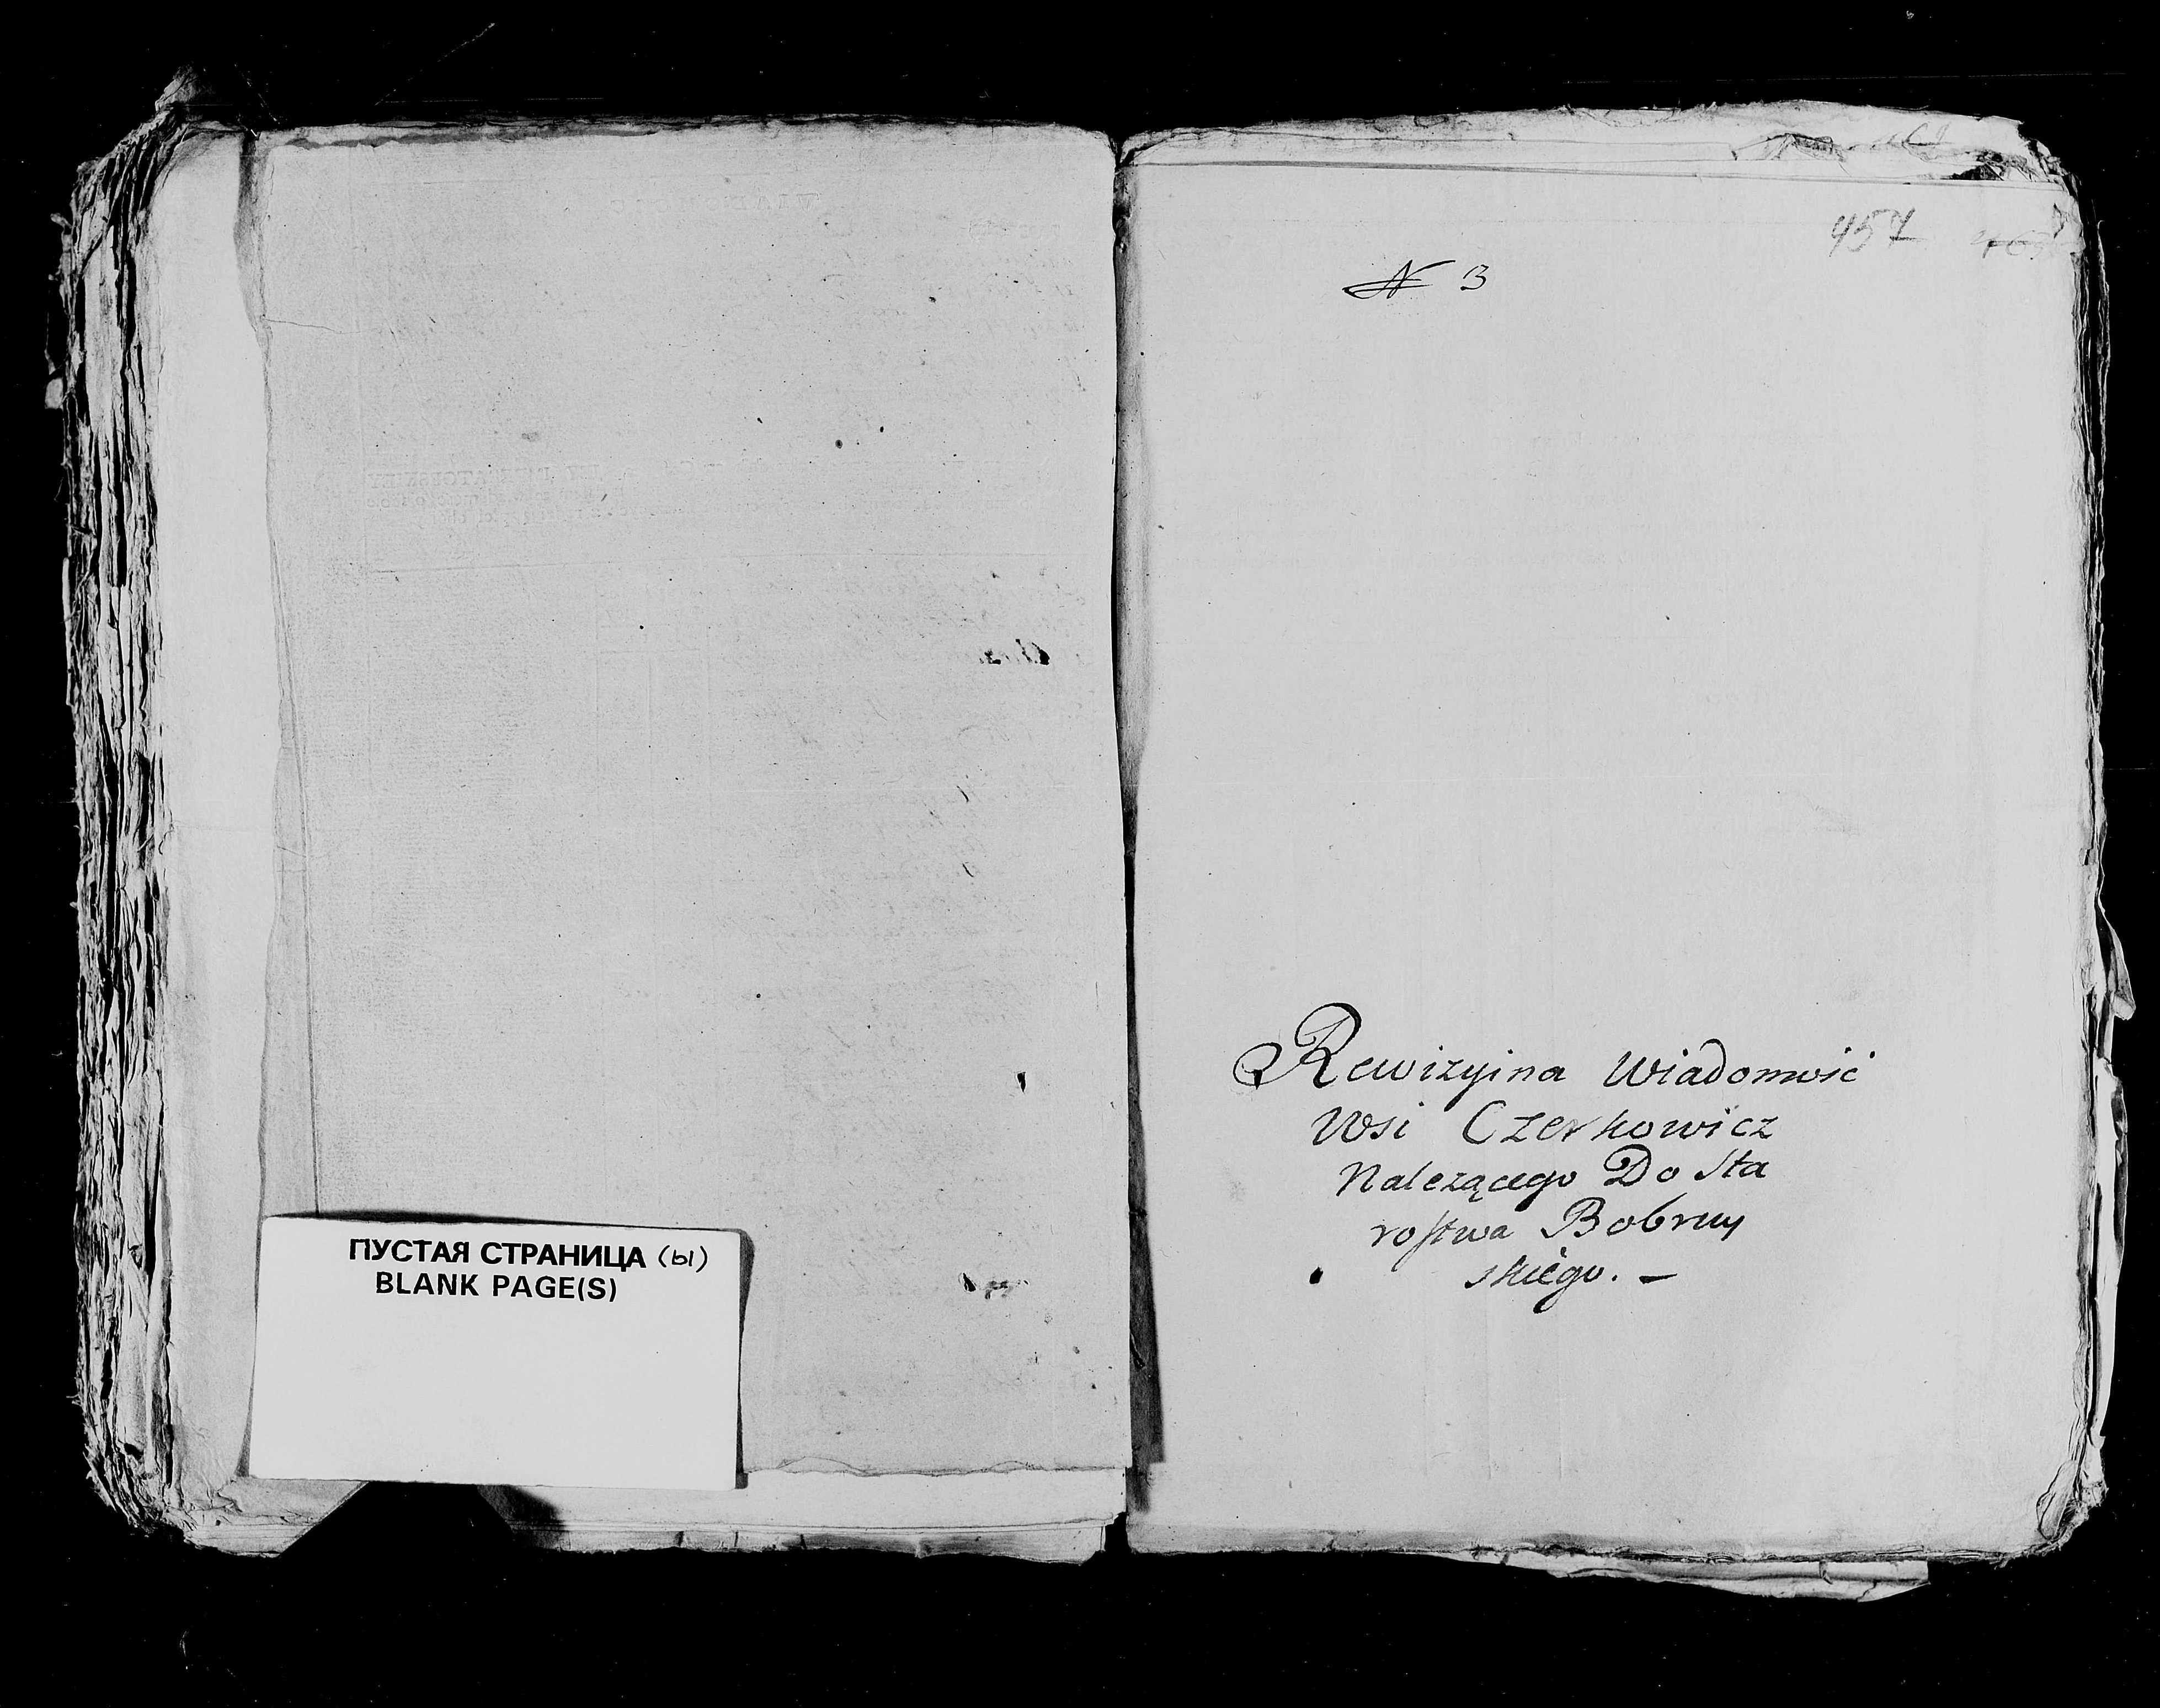 ПУСТАЯ СТРАНИЦА (ы)
BLANK PAGE(S)
457
N 3
Rewizyina Wiadomość
Wsi Czerkowicz
Nalezącego Do Sta
rostwa Bobruy
skiego. —